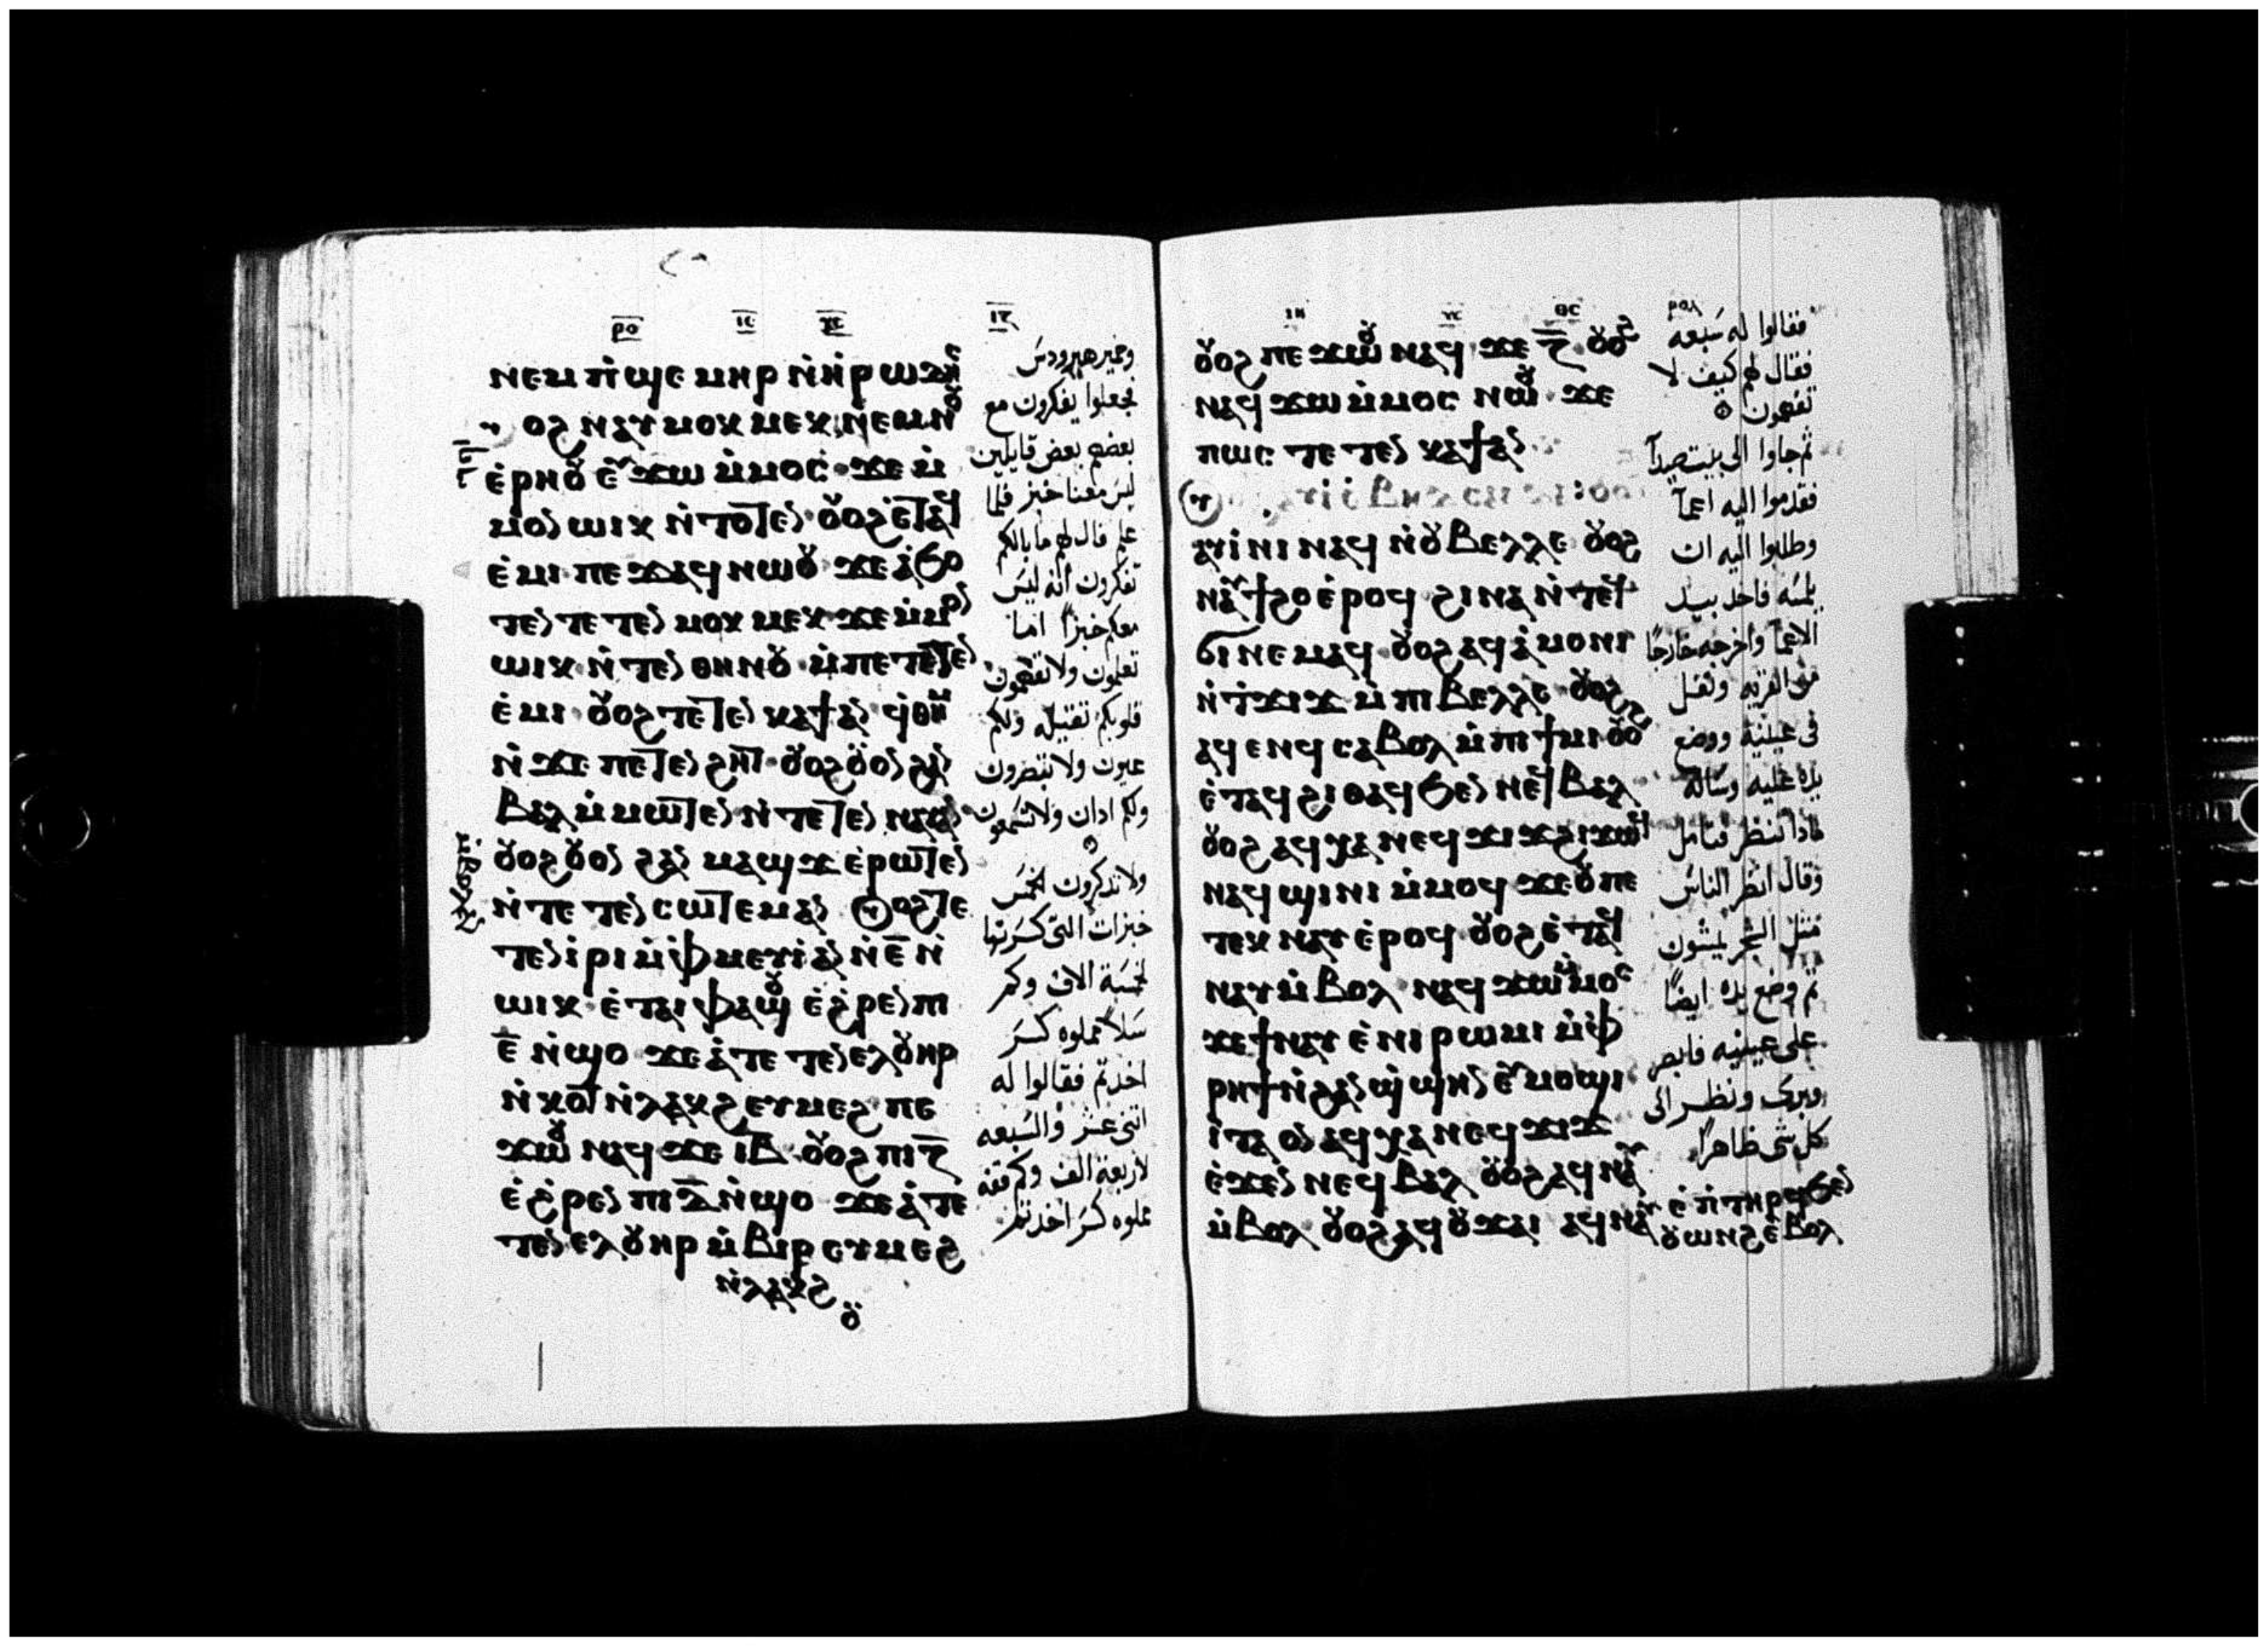 ⲣⲟ
ⲛⲉⲙ ⲡ̀ϣⲉⲙⲏⲣ ⲛ̀ⲏ̀ⲣⲱⲇⲏⲥ
ⲟϩ ⲛⲁⲩⲙⲟⲕⲙⲉⲕ ⲛⲉⲙ ⲛⲟⲩ
ⲉ̀ⲣⲏⲟⲩ ⲉⲩϫⲱ ⲙ̀ⲙⲟⲥ ϫⲉ ⲙ̀
ⲙⲟⲛ ⲱⲓⲕ ⲛ̀ⲧⲟⲧⲉⲛ ⲟⲩⲟϩ ⲉ̀ⲧⲁϥ
ⲉ̀ⲙⲓ ⲡⲉϫⲁϥ ⲛⲱⲟⲩ ϫⲉ ⲁ̀ϭⲟ
ⲧⲉⲛ ⲧⲉⲧⲉⲛⲙⲟⲕⲙⲉⲕ ϫⲉ ⲙ̀ⲙⲟⲛ
ⲱⲓⲕ ⲛ̀ⲧⲉⲛ ⲑⲏⲛⲟⲩ ⲙ̀ⲡⲉⲧⲉⲧⲉⲛ
ⲉ̀ⲙⲓ ⲟⲩⲟϩ ⲧⲉⲧⲉⲛⲕⲁϯ ⲁⲛ ϥ̀ⲑⲏⲙ
ⲛ̀ϫⲉ ⲡⲉⲧⲉⲛϩⲏⲧ ⲟⲩⲟϩ ⲟⲩⲟⲛ ϩⲁⲛ
ⲃⲁⲗ ⲙ̀ⲙⲱⲧⲉⲛ ⲛ̀ⲧⲉⲧⲉⲛⲛⲁⲩ ⲁⲛ
ⲙ̀ⲃⲟⲗ ⲁⲛ
ⲟⲩⲟϩ ⲟⲩⲟⲛ ϩⲁⲛⲙⲁϣϫ ⲉⲣⲱⲧⲉⲛ
ⲛ̀ⲧⲉⲧⲉⲛⲥⲱⲧⲉⲙ ⲁⲛ ⲟϩ ⲧⲉ
ⲧⲉⲛⲓ̀ⲣⲓ ⲙ̀ⲫ̀ⲙⲉⲩⲓ̀ ⲁⲛ ⲛ̀ⲉ̅ ⲛ̀
ⲱⲓⲕ ⲉ̀ⲧⲁⲓⲫⲁϣⲟⲩ ⲉ̀ϩ̀ⲣⲉⲛ ⲡⲓ
ⲉ̅ ⲛ̀ϣⲟ ϫⲉ ⲁ̀ⲧⲉⲧⲉⲛⲉⲗ ⲟⲩⲏⲣ
ⲛ̀ⲕⲟⲧ ⲛ̀ⲗⲁⲕϩ ⲉⲩⲙⲉϩ ⲡⲉ
ϫⲱⲟⲩ ⲛⲁϥ ϫⲉ ⲓⲃ̅ ⲟⲩⲟϩ ⲡⲓⲍ̅
ⲉ̀ϩ̀ⲣⲉⲛ ⲡⲓⲇ̅ ⲛ̀ϣⲟ ϫⲉ ⲁ̀ⲧⲉ
ⲧⲉⲛⲉⲗ ⲟⲩⲏⲣ ⲙ̀ⲃⲓⲣ ⲉⲩⲙⲉϩ
ⲛ̀ⲗⲁⲕϩ
ⲟⲩ
وخمير هيرودس
فجعلوا يفكرون مع
بعضهم بعض قايلين
ليس معنا خبز فلما
علم قال لهم ما بالكم
تفكرون انه ليس
معكم خبزًا اما
تعلمون ولا تفهمون
قلوبكم ثقيله ولكم
عيون ولا تبصرون
ولكم ادان ولا تسمعون
ولا تذكرون الخمس
خبزات التى كسرتها
لخمسة الاف وكم
سلاً مملوه كسر
اخذتم فقالوا له
اثنى عشر والسبعه
لاربعة الف وكم قفه
مملوه كسر اخذتم
ⲟⲩⲟϩ ⲡⲉϫⲱⲟⲩ ⲛⲁϥ ϫⲉ ⲍ̅ ⲟⲩⲟϩ
ⲛⲁϥϫⲱ ⲙ̀ⲙⲟⲥ ⲛⲱⲟⲩ ϫⲉ
ⲡⲱⲥ ⲧⲉⲧⲉⲛⲕⲁϯ ⲁⲛ
ⲁⲩⲓ̀ⲛⲓ ⲛⲁϥ ⲛ̀ⲟⲩⲃⲉⲗⲗⲉ ⲟⲩⲟϩ
ⲛⲁⲩϯϩⲟ ⲉ̀ⲣⲟϥ ϩⲓⲛⲁ ⲛ̀ⲧⲉϥ
ϭⲓ ⲛⲉⲙⲁϥ ⲟⲩⲟϩ ⲁϥⲁ̀ⲙⲟⲛⲓ
ⲛ̀ⲧ̀ϫⲓϫ ⲙ̀ⲡⲓⲃⲉⲗⲗⲉ ⲟⲩⲟϩ
ⲁϥⲉⲛϥ ⲥⲁⲃⲟⲗ ⲙ̀ⲡⲓϯⲙⲓ ⲟⲩⲟϩ
ⲉ̀ⲧⲁϥϩⲓⲑⲁϥ ϧⲉⲛ ⲛⲉϥⲃⲁⲗ
ⲟⲩⲟϩ ⲁϥⲭⲁ ⲛⲉϥϫⲓϫ ϩⲓϫⲱϥ
ⲛⲁϥϣⲓⲛⲓ ⲙ̀ⲙⲟϥ ϫⲉ ⲟⲩ ⲡⲉ
ⲧⲉⲕⲛⲁⲩ ⲉ̀ⲣⲟϥ ⲟⲩⲟϩ ⲉ̀ⲧⲁϥ
ⲛⲁⲩ ⲙ̀ⲃⲟⲗ ⲛⲁϥϫⲱ ⲙ̀ⲙⲟⲥ
ϫⲉ ϯⲛⲁⲩ ⲉ̀ⲛⲓⲣⲱⲙⲓ ⲙ̀ⲫ̀
ⲣⲏϯ ⲛ̀ϩⲁⲛϣ̀ϣⲏⲛ ⲉⲩⲙⲟϣⲓ
ⲓ̀ⲧⲁ ⲟⲛ ⲁϥⲭⲁ ⲛⲉϥϫⲓϫ
ⲉ̀ϫⲉⲛ ⲛⲉϥⲃⲁⲗ ⲟⲩⲟϩ ⲁϥⲛⲁⲩ
ⲙ̀ⲃⲟⲗ ⲟⲩⲟϩ ⲁϥⲟⲩϫⲁⲓ ⲁϥⲛⲁⲩ
ⲉ̀ⲡ̀ⲧⲏⲣϥ ϧⲉⲛ
ⲟⲩⲱⲛϩ ⲉ̀ⲃⲟⲗ
فقالوا له سبعه
فقال لهم كيف لا
تفهمون
ثم جاوا الى بيت صيدا
فقدموا اليه اعما
وطلبوا اليه ان
يلمسه فاخذ بيد
الاعما واخرجه خارجًا
من القريه وتفل
فى عينيه ووضع
يده عليه وساله
ماذا تنظر فتامل
وقال انظر الناس
مثل الشجر يمشون
ثم وضع يده ايضًا
على عينيه فابصر
وبرى ونظر الى
كل شى ظاهرًا